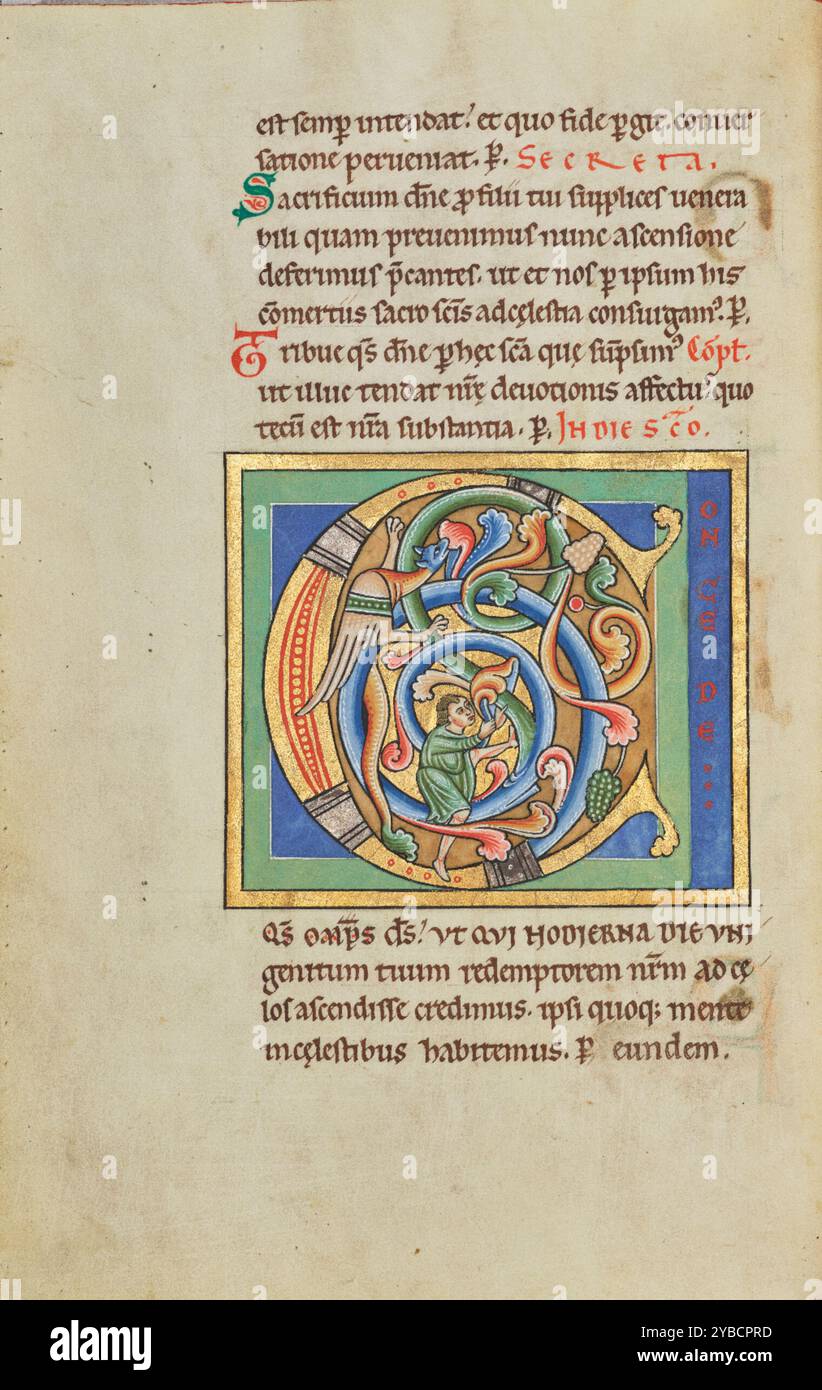 est semp intendat.' et quo fide pgit. conuer
satione perueniat. P. SECRETA.
Sacrificium dne pro filii tui supplices uenera
bili quam preuenimus nunc ascensione
deferimus pcantes. ut et nos p ipsum his
comertiis sacro scis ad cęlestia consurgam'. P.
Tribue qs dne p hęc scā quę supsim' Cōpt.
ut illuc tendat nrę deuotionis affectus quo
tecū est nrā substantia. P. IN DIE SCO.
CON CEDE...
QS OMPS DS.' VT QVI HODIERNA DIE VNI
genitum tuum redemptorem nrm ad cę
los ascendisse credimus. ipsi quoq; mente
in cęlestibus habitemus. P eundem.
alamy
Image ID: 2YBCPRD
www.alamy.com